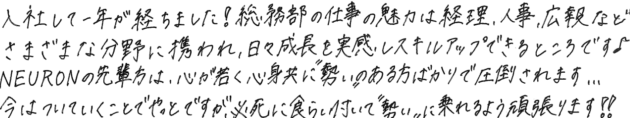 入社して一年が経ちました!総務部の仕事の魅力は経理、人事、広報など
さまざまな分野に携われ、日々成長を実感しスキルアップできるところです♪
NEURONの先輩方は、心が若く心身共に"勢い"のある方ばかりで圧倒されます...
今はついていくことでやっとですが、必死に食らい付いて"勢い"に乗れるよう頑張ります!!